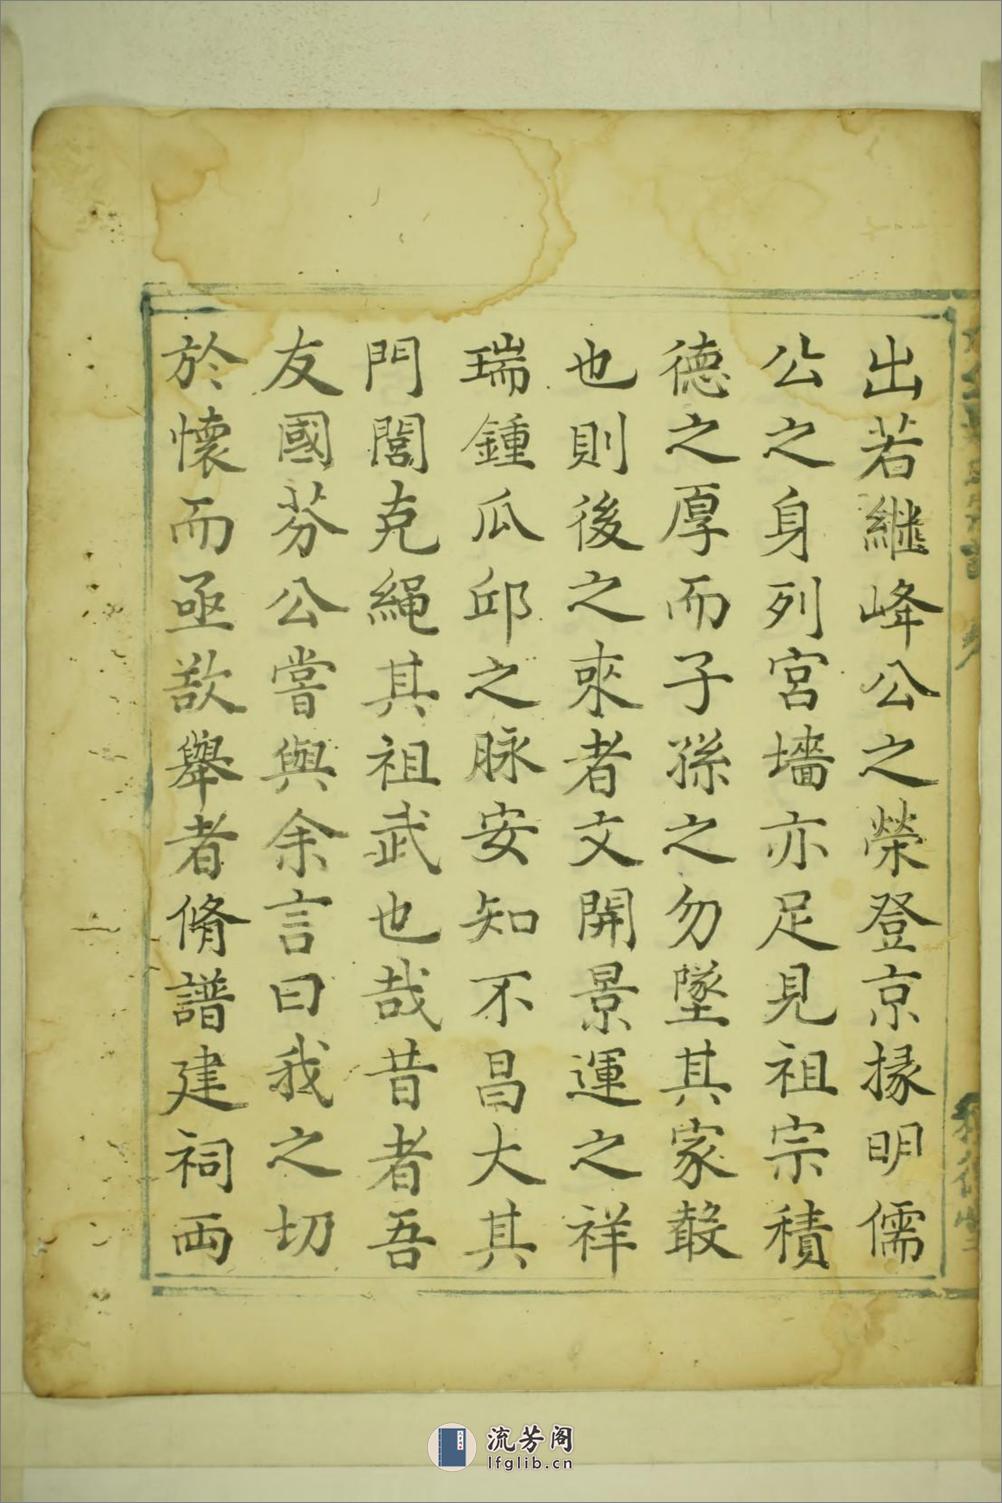 出若繼峰公之榮登京掾明儒
公之身列宮墻亦足見祖宗積
德之厚而子孫之勿墜其家聲
也則後之來者文開景運之祥
瑞鍾瓜邱之脉安知不昌大其
門閭克繩其祖武也哉昔者吾
友國芬公嘗與余言曰我之切
於懷而亟欲舉者脩譜建祠兩
流芳阁
lfglib.cn